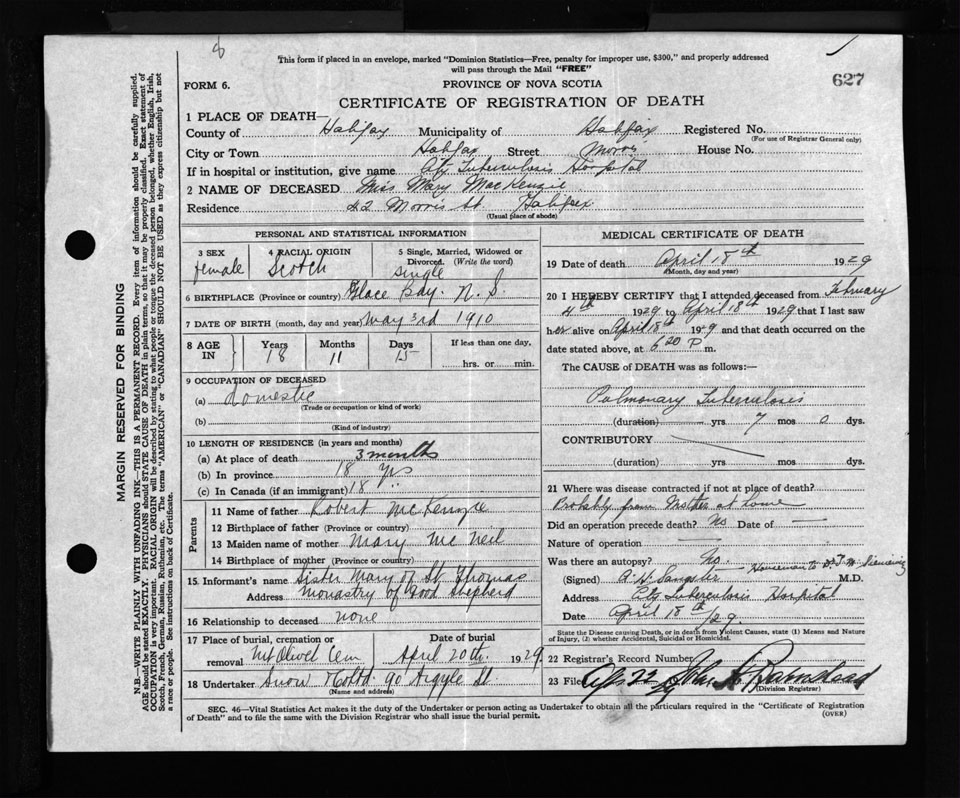 8
This form if placed in an envelope, marked "Dominion Statistics—Free, penalty for improper use, $300," and properly addressed
will pass through the Mail "FREE"
627
FORM 6.
PROVINCE OF NOVA SCOTIA
CERTIFICATE OF REGISTRATION OF DEATH
1 PLACE OF DEATH—
County of Halifax Municipality of Halifax Registered No.
(For use of Registrar General only)
City or Town Halifax Street Morris House No.
If in hospital or institution, give name City Tuberculosis Hospital
2 NAME OF DECEASED Miss Mary MacKenzie
Residence 42 Morris St Halifax
(Usual place of abode)
PERSONAL AND STATISTICAL INFORMATION
3 SEX female
4 RACIAL ORIGIN Scotch
5 Single, Married, Widowed or Divorced. (Write the word) single
6 BIRTHPLACE (Province or country) Glace Bay. N.S.
7 DATE OF BIRTH (month, day and year) May 3rd 1910
8 AGE IN Years 18 Months 11 Days 15 If less than one day, hrs. or min.
9 OCCUPATION OF DECEASED
(a) Domestic
(Trade or occupation or kind of work)
(b)
(Kind of industry)
10 LENGTH OF RESIDENCE (in years and months)
(a) At place of death 3 months
(b) In province 18 yrs
(c) In Canada (if an immigrant) 18 "
Parents
11 Name of father Robert McKenzie
12 Birthplace of father (Province or country)
13 Maiden name of mother Mary McNeil
14 Birthplace of mother (Province or country)
15 Informant's name Sister Mary of St. Thomas
Address Monastry of Good Shepherd
16 Relationship to deceased none
17 Place of burial, cremation or removal Mt Olivet Cem Date of burial April 20th 1929
18 Undertaker Snow & Co Ltd 90 Argyle St
(Name and address)
MEDICAL CERTIFICATE OF DEATH
19 Date of death April 18th 1929
(Month, day and year)
20 I HEREBY CERTIFY that I attended deceased from February
4th 1929 to April 18th 1929 that I last saw
her alive on April 18th 1929 and that death occurred on the
date stated above, at 6.20 P m.
The CAUSE of DEATH was as follows:—
Pulmonary Tuberculosis
(duration) yrs 7 mos 0 dys.
CONTRIBUTORY
(duration) yrs. mos. dys.
21 Where was disease contracted if not at place of death?
Probably from Mother at home
Did an operation precede death? No Date of —
Nature of operation —
Was there an autopsy? No
(Signed) A. H. Sangster M.D.
Address City Tuberculosis Hospital
Date April 18th /29.
State the Disease causing Death, or in death from Violent Causes, state (1) Means and Nature
of Injury, (2) whether Accidental, Suicidal or Homicidal.
22 Registrar's Record Number
23 Filed Apr 22/29
(Division Registrar)
SEC. 46—Vital Statistics Act makes it the duty of the Undertaker or person acting as Undertaker to obtain all the particulars required in the "Certificate of Registration
of Death" and to file the same with the Division Registrar who shall issue the burial permit.
(OVER)
MARGIN RESERVED FOR BINDING
N.B.—WRITE PLAINLY WITH UNFADING INK—THIS IS A PERMANENT RECORD. Every item of information should be carefully supplied.
AGE should be stated EXACTLY. PHYSICIANS should STATE CAUSE OF DEATH in plain terms, so that it may be properly classified. Exact statement of
OCCUPATION is very important. RACIAL ORIGIN will be described by stating to what people or tongue the deceased person belonged, whether English, Irish,
Scotch, French, German, Russian, Ruthenian, etc. The terms "AMERICAN" or "CANADIAN" SHOULD NOT BE USED as they express citizenship but not
a race or people. See instructions on back of Certificate.